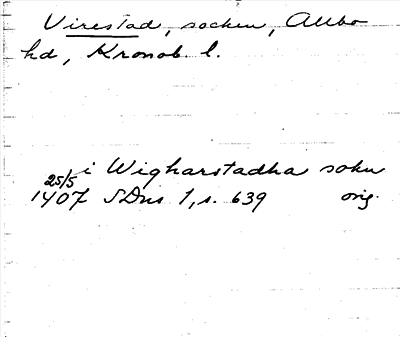 Virestad, socken, Allbo
hd, Kronob. l.
i Wigharstadha sokn
25/5
1407 SDns 1, s. 639 orig.